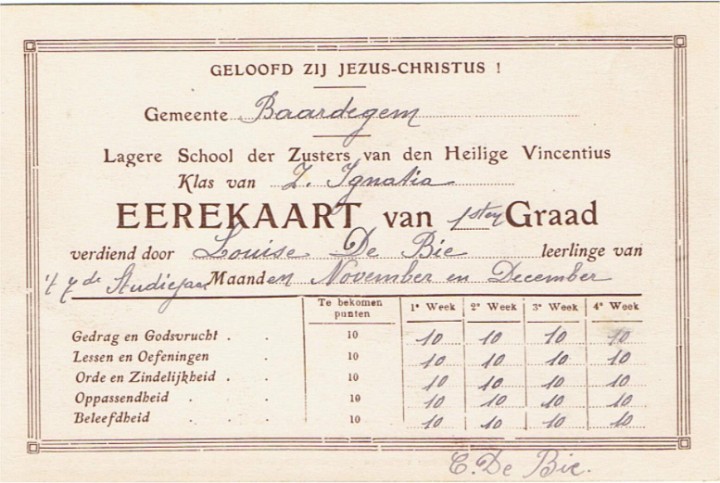 GELOOFD ZIJ JEZUS-CHRISTUS !
Gemeente Baardegem
Lagere School der Zusters van den Heilige Vincentius
Klas van Z. Ignatia
EEREKAART van 1sten Graad
verdiend door Louise De Bie leerlinge van
't 7de Studiejaar Maanden November en December
Te bekomen punten 1e Week 2e Week 3e Week 4e Week
Gedrag en Godsvrucht . . 10 10 10 10 10
Lessen en Oefeningen . 10 10 10 10 10
Orde en Zindelijkheid . . 10 10 10 10 10
Oppassendheid . . 10 10 10 10 10
Beleefdheid . . 10 10 10 10 10
C. De Bie.